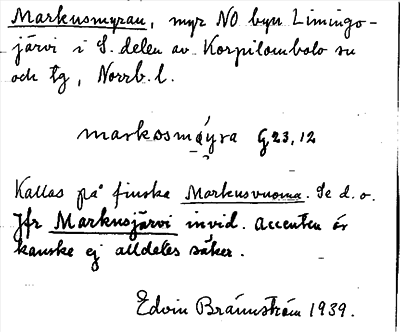 Markusmyran, myr NO byn Limingo-
järvi i S. delen av Korpilombolo sn
och tg, Norrb. l.
markosmáyra G23,12
Kallas på finska Markusvuoma. Se d. o.
Jfr Markusjärvi invid. Accenten är
kanske ej alldeles säker.
Edvin Brännström 1939.